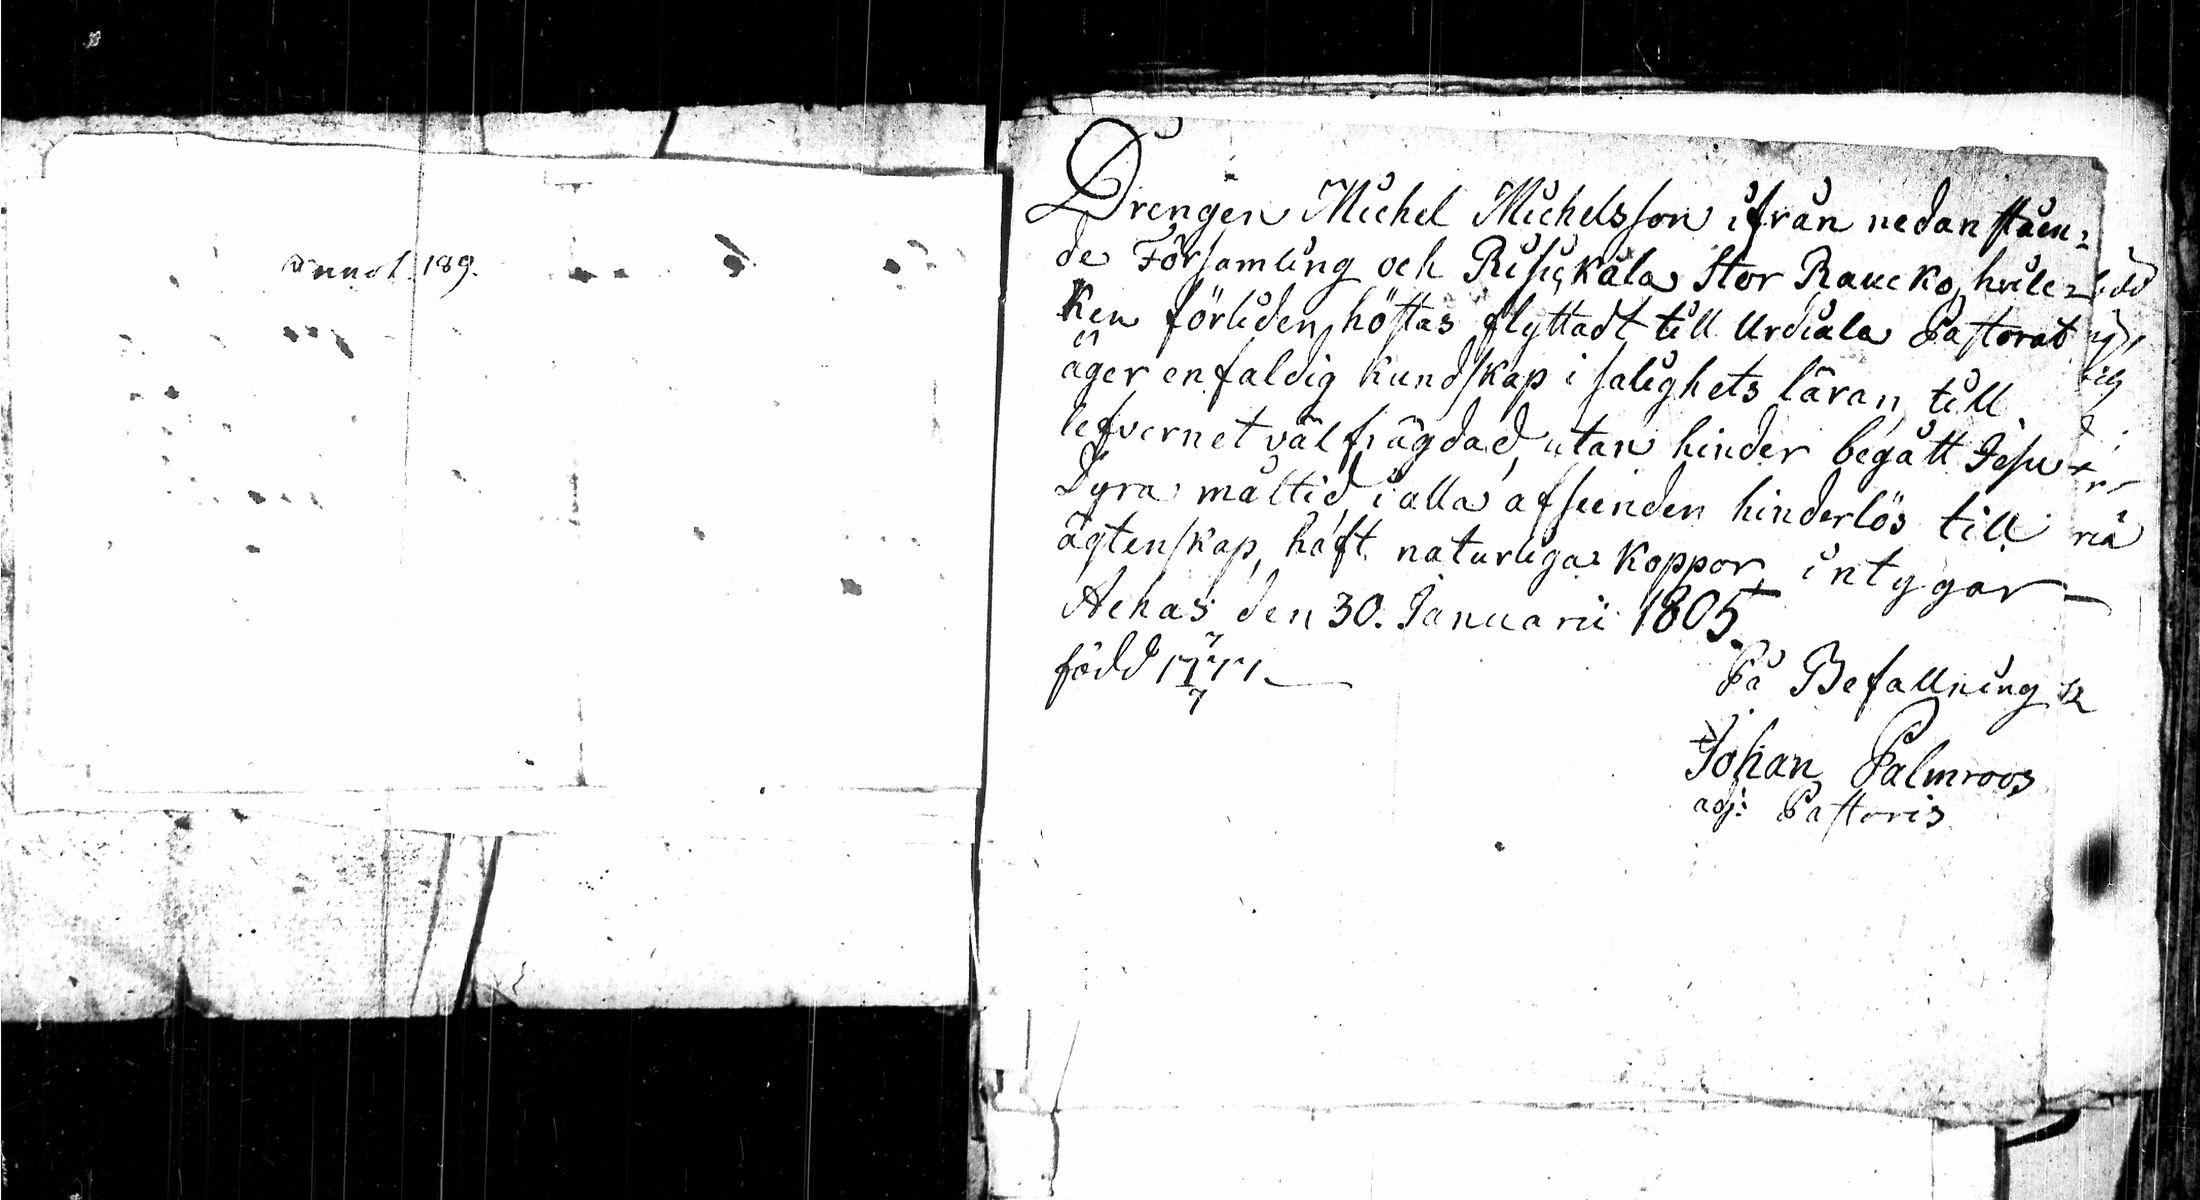 annot. 189.
Drengen Michel Michelsson ifrån nedanståen=
de Församling och Risickala Stor Raucko, hvil=
ken förliden höstas flyttadt till Urdiala Pastorat
äger enfaldig kundskap i salighets läran, till
lefvernet välfrägdad, utan hinder begått Jesu
Dyra måltid, i alla afseenden hinderlös till
ägtenskap, haft naturliga koppor, intygar
Achas den 30. Januarii 1805.
född 17 7/7 71
På Befallning
Johan Palmroos
adj: Pastoris